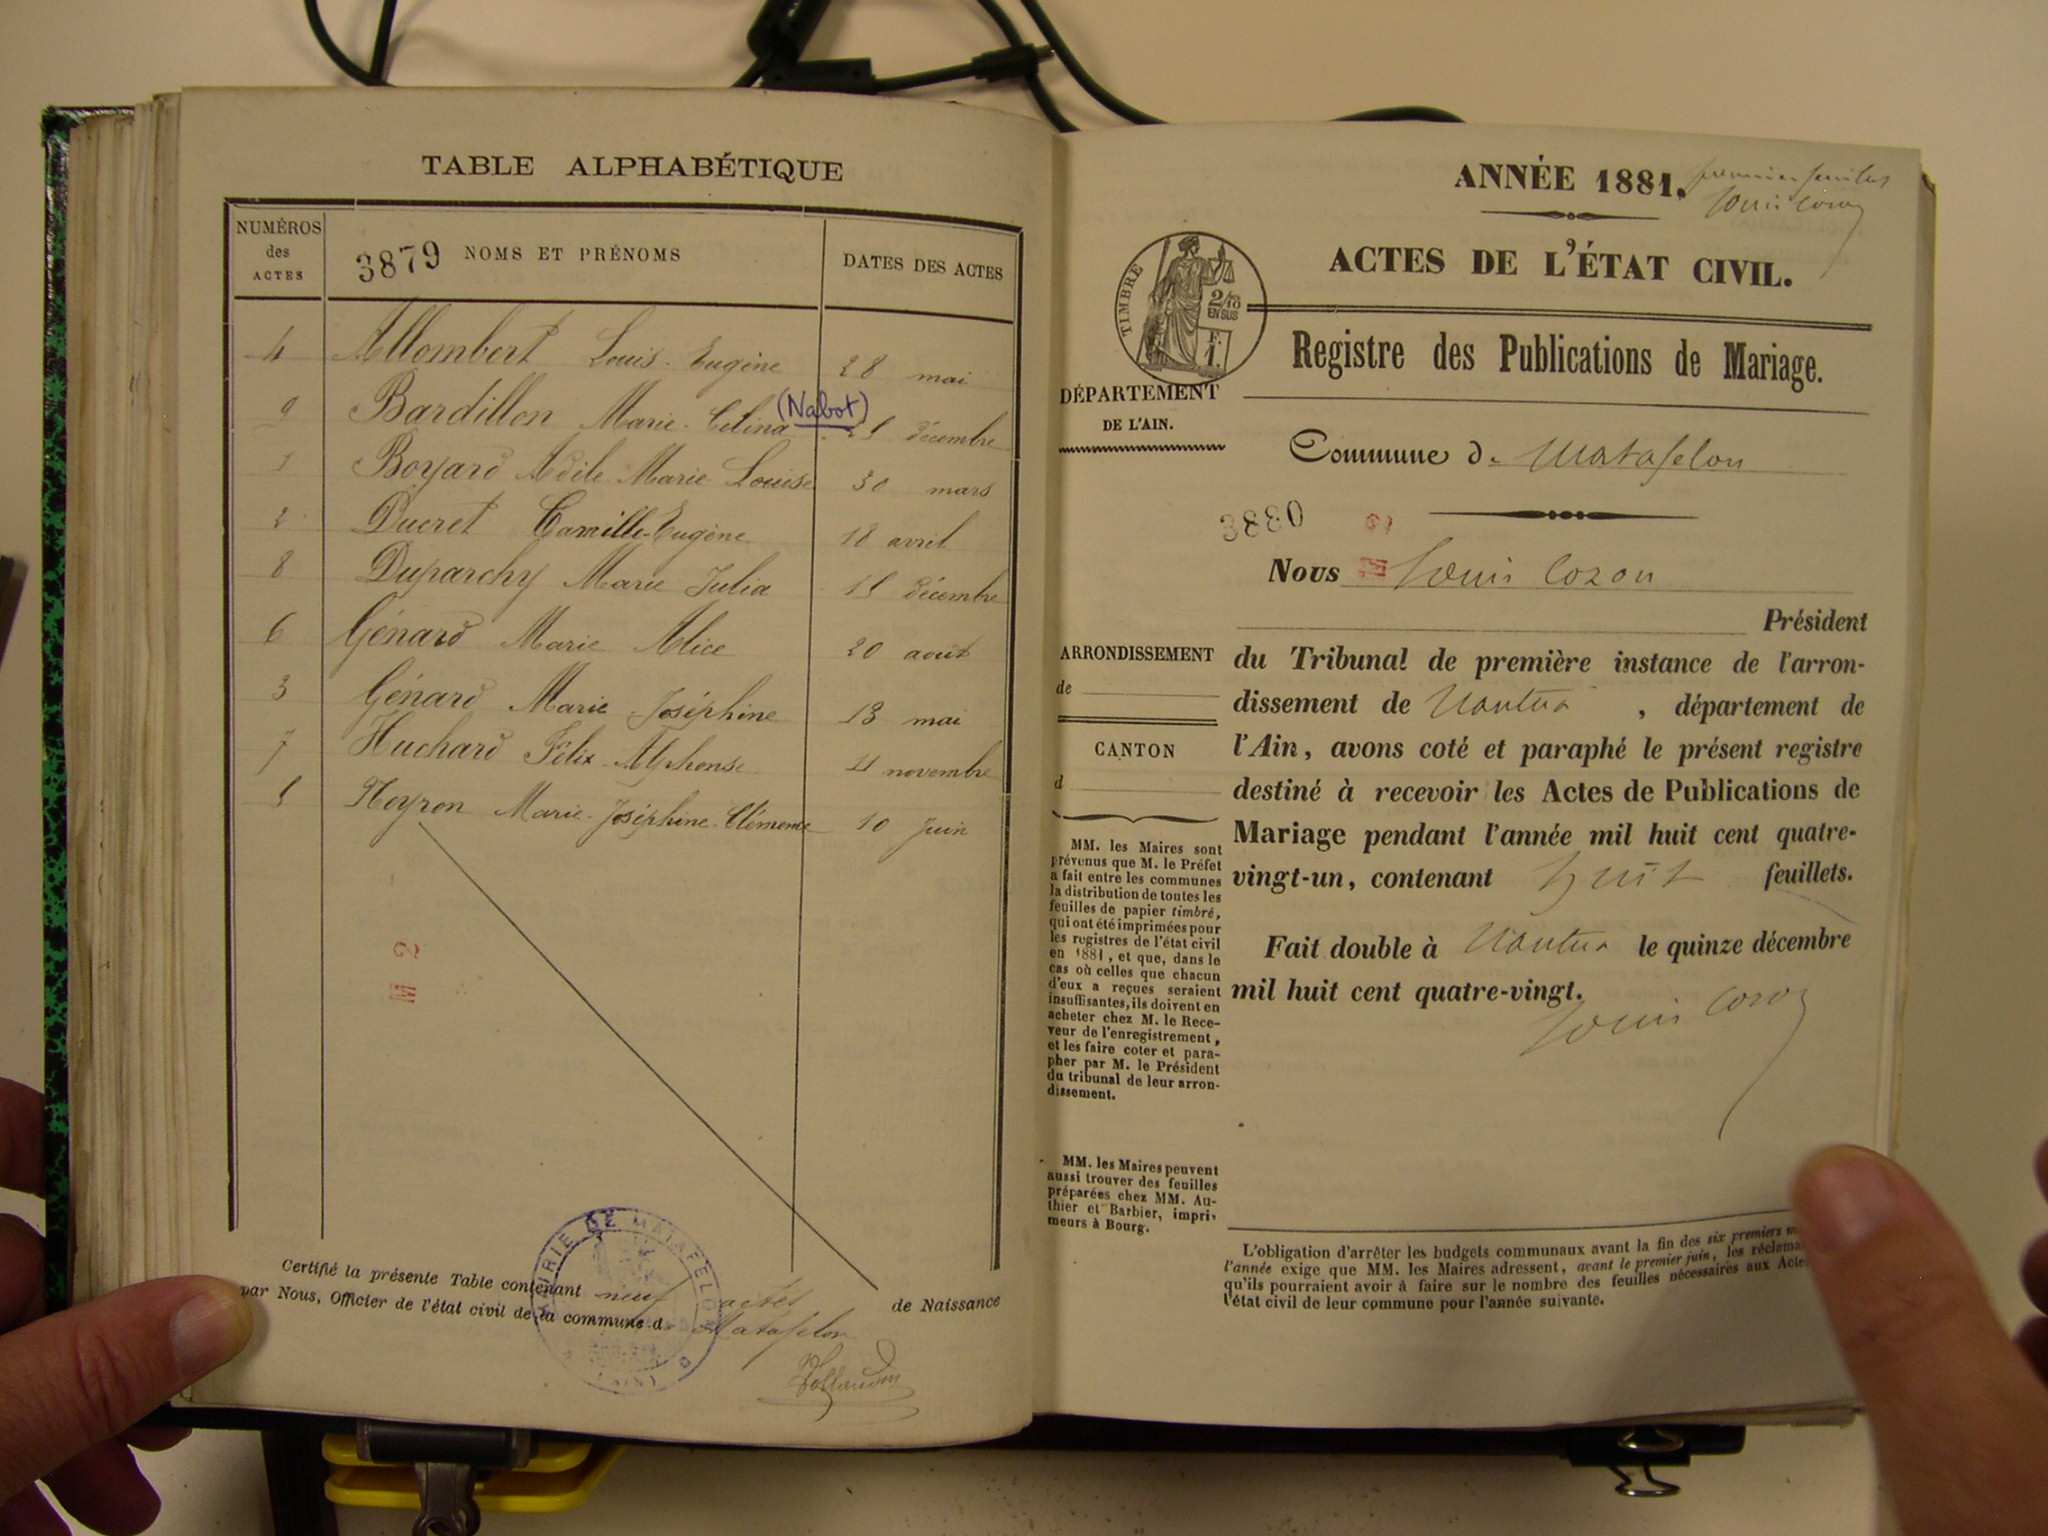 TABLE ALPHABÉTIQUE
NUMÉROS des ACTES
3879 NOMS ET PRÉNOMS
DATES DES ACTES
4 Allombert Louis-Eugène 28 mai
9 Bardillon Marie-Célina (Nabot) 25 décembre
1 Boyard Adèle Marie Louise 30 mars
2 Ducret Camille-Eugène 18 avril
8 Duparchy Marie Julia 15 décembre
6 Génard Marie Alice 20 août
3 Génard Marie Joséphine 13 mai
7 Huchard Félix-Alphonse 11 novembre
5 Neyron Marie-Joséphine-Clémence 10 Juin
M 2
Certifié la présente Table contenant neuf actes de Naissance
par Nous, Officier de l'état civil de la commune d. Matafelon
MAIRIE DE MATAFELON
(AIN)
ANNÉE 1881.
premier feuillet
Louis Cozon
ACTES DE L'ÉTAT CIVIL.
TIMBRE
2/10
EN SUS
1 F.
Registre des Publications de Mariage.
DÉPARTEMENT
DE L'AIN.
Commune de Matafelon
3880
Nous Louis Cozon
Président
du Tribunal de première instance de l'arron-
dissement de Nantua , département de
l'Ain, avons coté et paraphé le présent registre
destiné à recevoir les Actes de Publications de
Mariage pendant l'année mil huit cent quatre-
vingt-un, contenant huit feuillets.
Fait double à Nantua le quinze décembre
mil huit cent quatre-vingt.
Louis Cozon
ARRONDISSEMENT
de
CANTON
d
MM. les Maires sont
prévenus que M. le Préfet
a fait entre les communes
la distribution de toutes les
feuilles de papier timbré,
qui ont été imprimées pour
les registres de l'état civil
en 1881, et que, dans le
cas où celles que chacun
d'eux a reçues seraient
insuffisantes, ils doivent en
acheter chez M. le Rece-
veur de l'enregistrement,
et les faire coter et para-
pher par M. le Président
du tribunal de leur arron-
dissement.
MM. les Maires peuvent
aussi trouver des feuilles
préparées chez MM. Au-
thier et Barbier, impri-
meurs à Bourg.
L'obligation d'arrêter les budgets communaux avant la fin des six premiers
l'année exige que MM. les Maires adressent, avant le premier juin, les réclama
qu'ils pourraient avoir à faire sur le nombre des feuilles nécessaires aux Acte
l'état civil de leur commune pour l'année suivante.